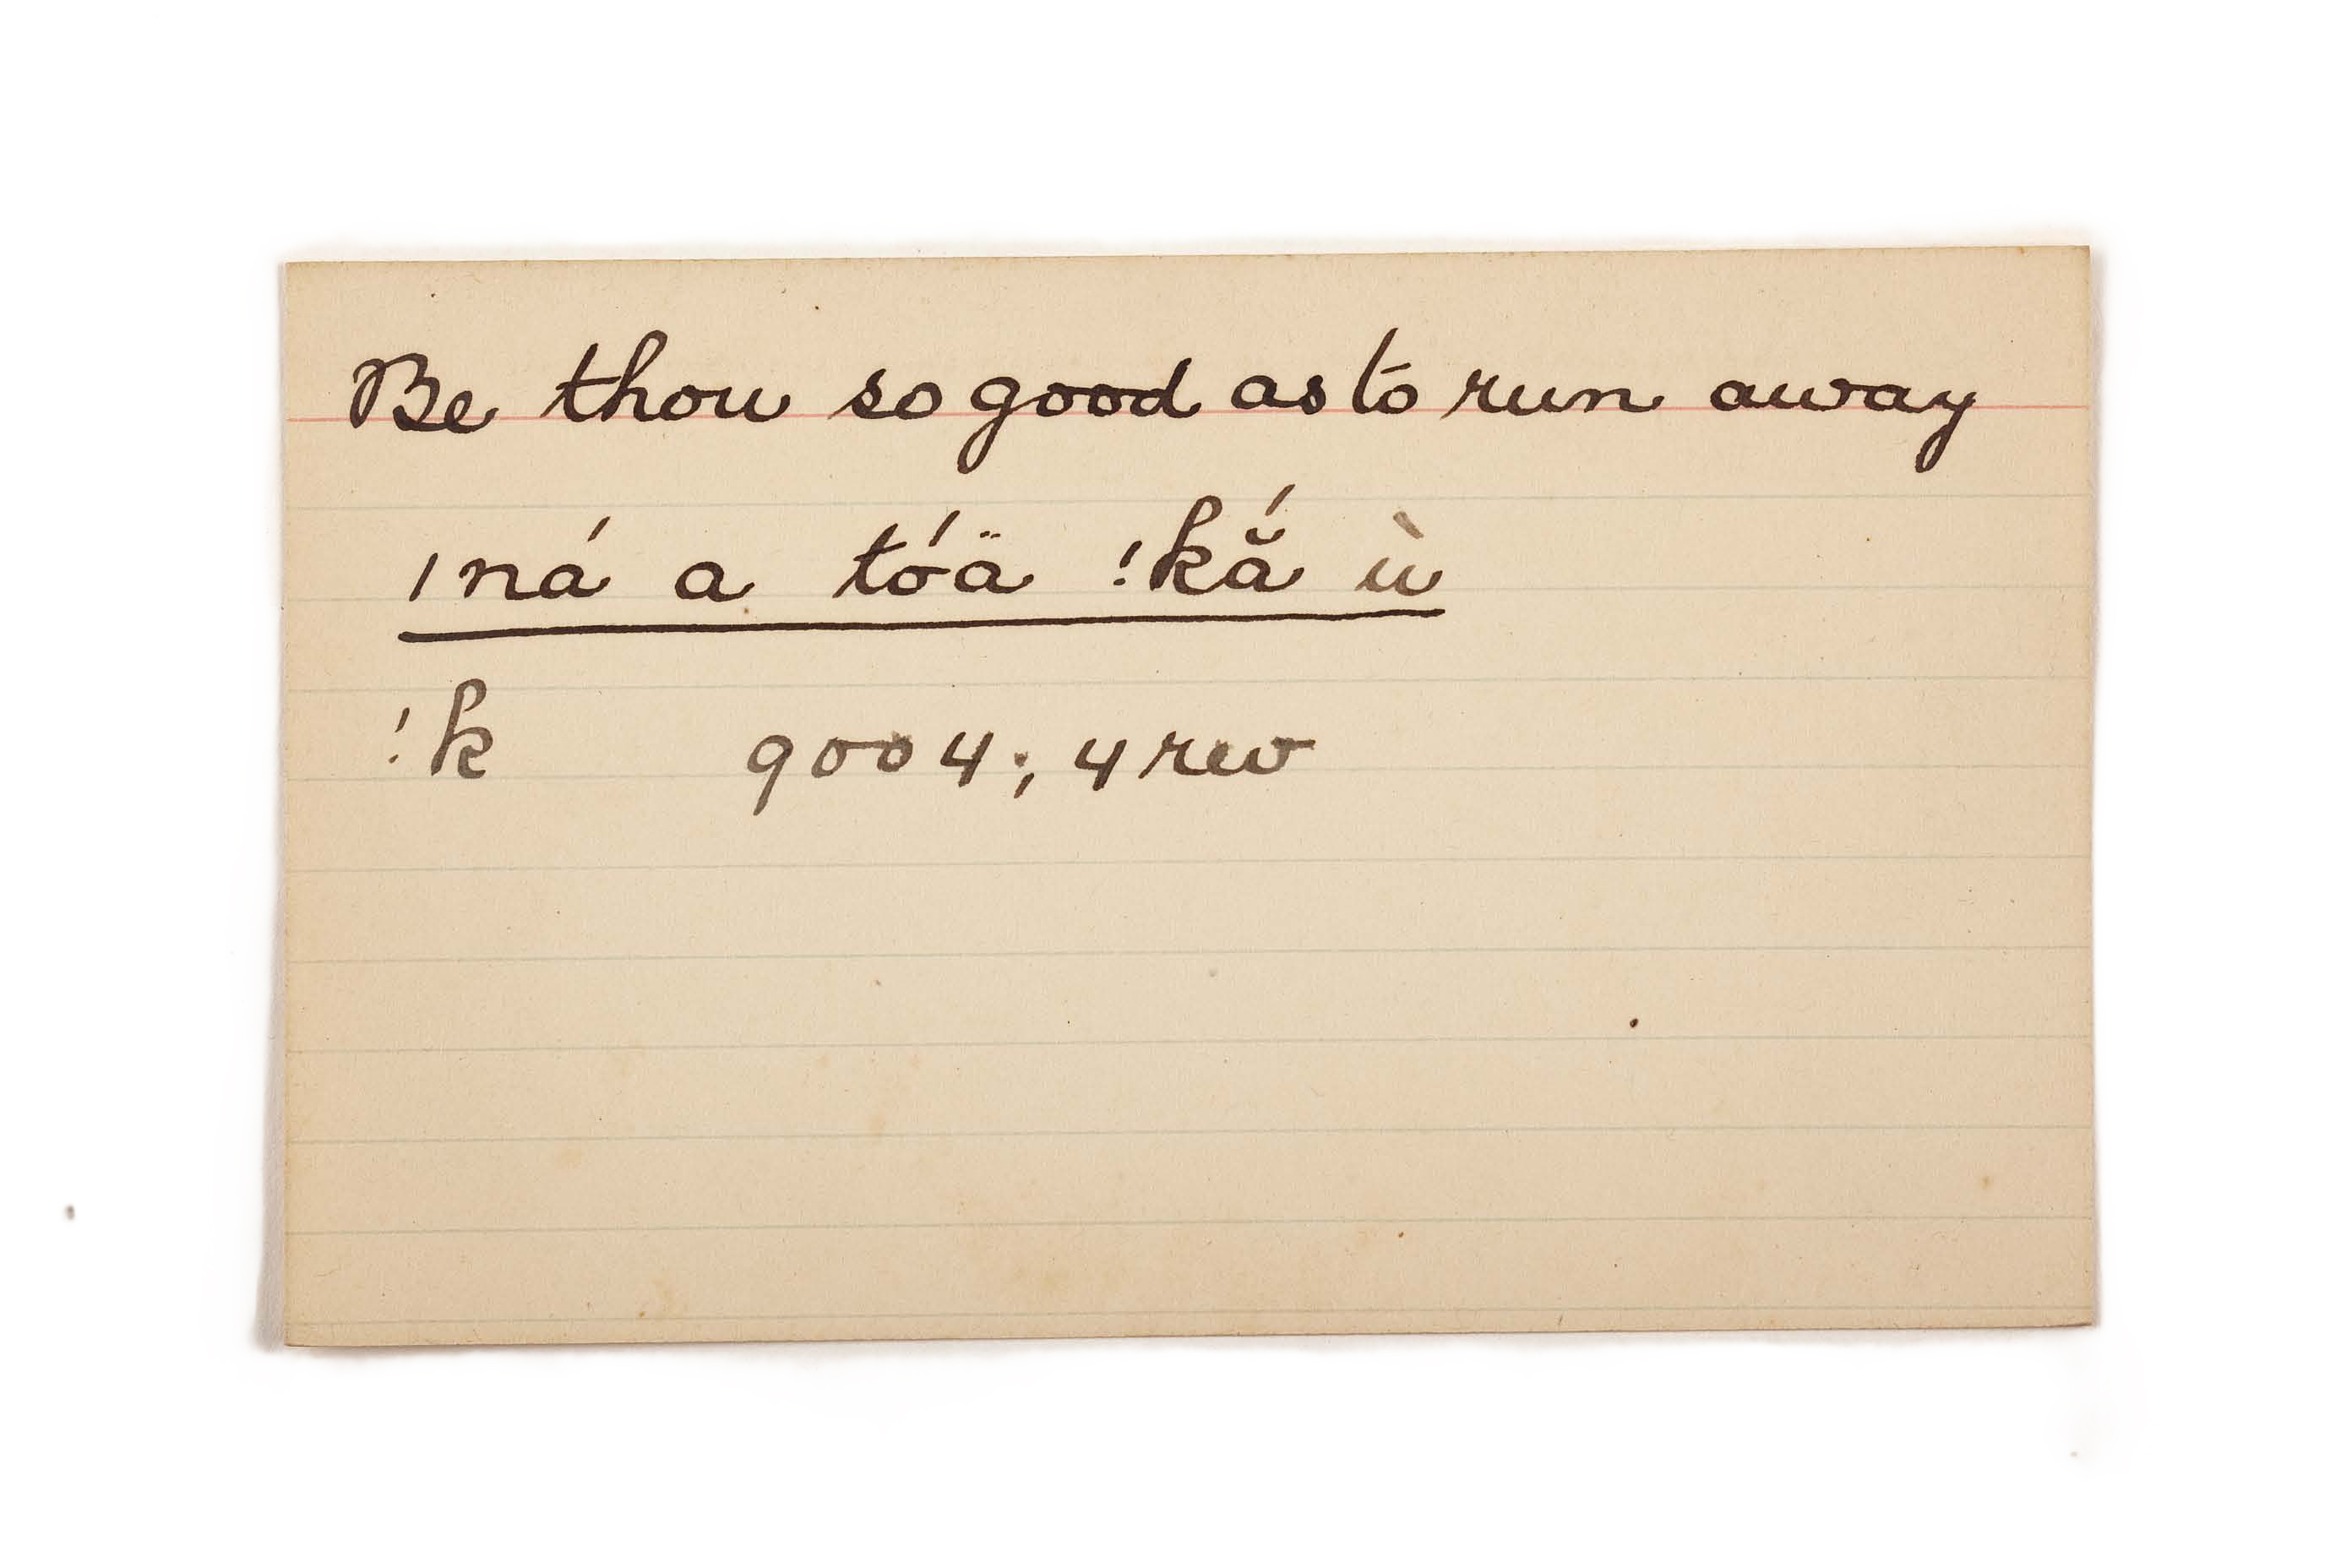 Be thou so good as to run away
ǀná a tóä !kắ ù
!k 9004; 4 rev